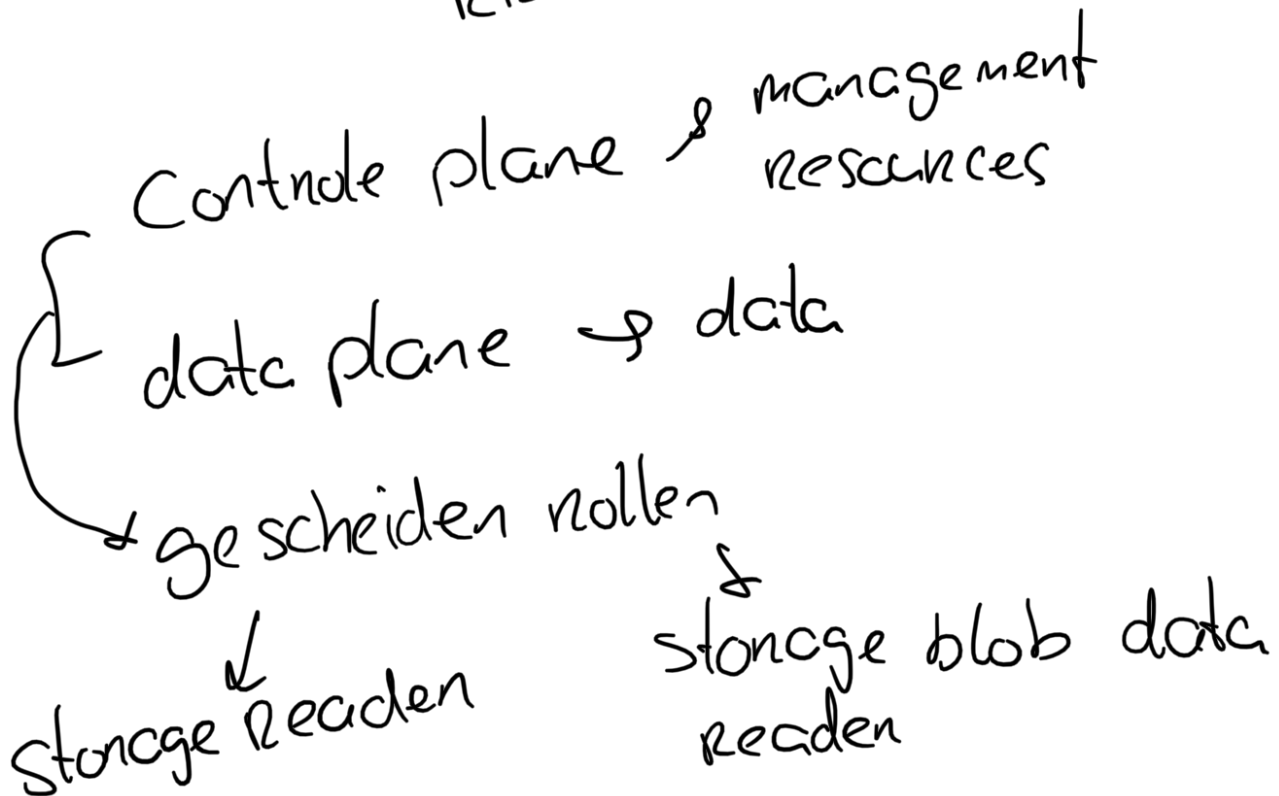 Controle plane → management
resources
data plane → data
gescheiden rollen
storage reader
storage blob data
reader